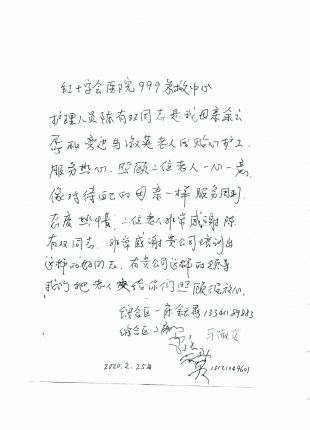 红十字会医院999急救中心
护理人员陈有双同志是我母亲余云
和旁边马淑英老人的贴心护工
服务热心，照顾二位老人一心一意
像对待自己的母亲一样服务周到
态度热情，二位老人非常感谢陈
有双同志，非常感谢贵公司培训出
这样的好同志，有贵公司这样的领导
我们把老人交给你们照顾很放心
综合区一床
综合区二床 马淑英
2020.2.25